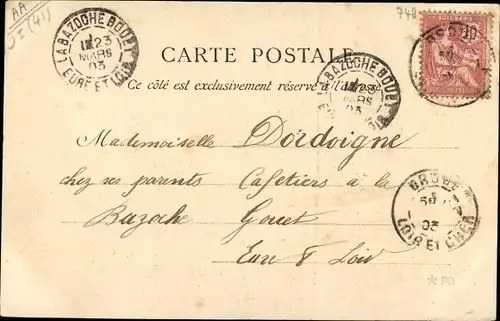 AA
JI (41)
LA BAZOCHE GOUET
23
MARS
03
EURE ET LOIR
740
POSTES
10
CARTE POSTALE
Ce côté est exclusivement réservé à l'adresse
LA BAZOCHE GOUET
23
MARS
03
Mademoiselle Dordoigne
chez ses parents Cafetiers à la
Bazoche Gouet
Eure & Loir
DROUÉ
03
LOIR ET CHER